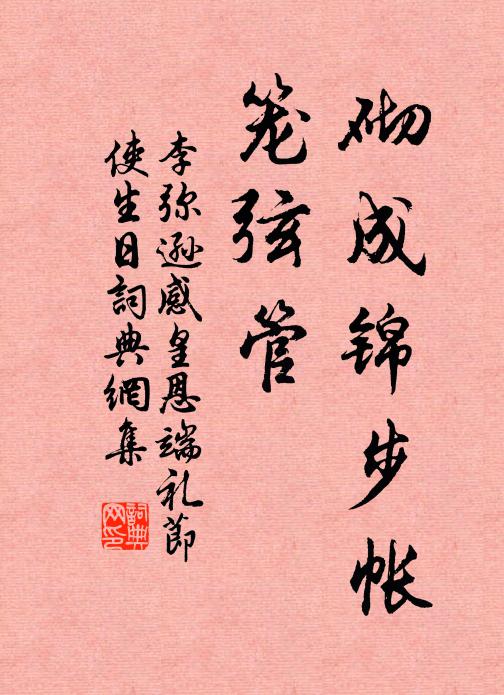 砌成锦步帐
笼弦管
李弥逊感皇恩端礼节
使生日詞典網集
詞典网印